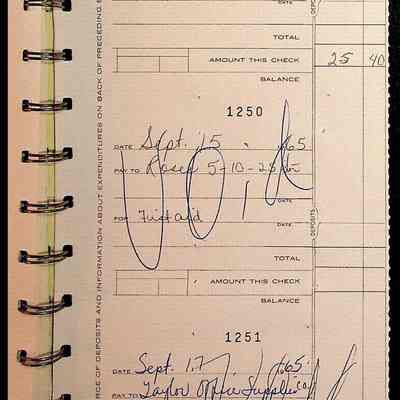 DATE
TOTAL
AMOUNT THIS CHECK 25 40
BALANCE
1250
DATE Sept. 15 65
PAY TO Roses 5-10-25
DATE
FOR First aid
DATE
TOTAL
AMOUNT THIS CHECK
BALANCE
1251
DATE Sept. 17 65
PAY TO Taylor Office Supplies
DEPOSITS
DEPOSITS
OF DEPOSITS AND INFORMATION ABOUT EXPENDITURES ON BACK OF PRECEDING